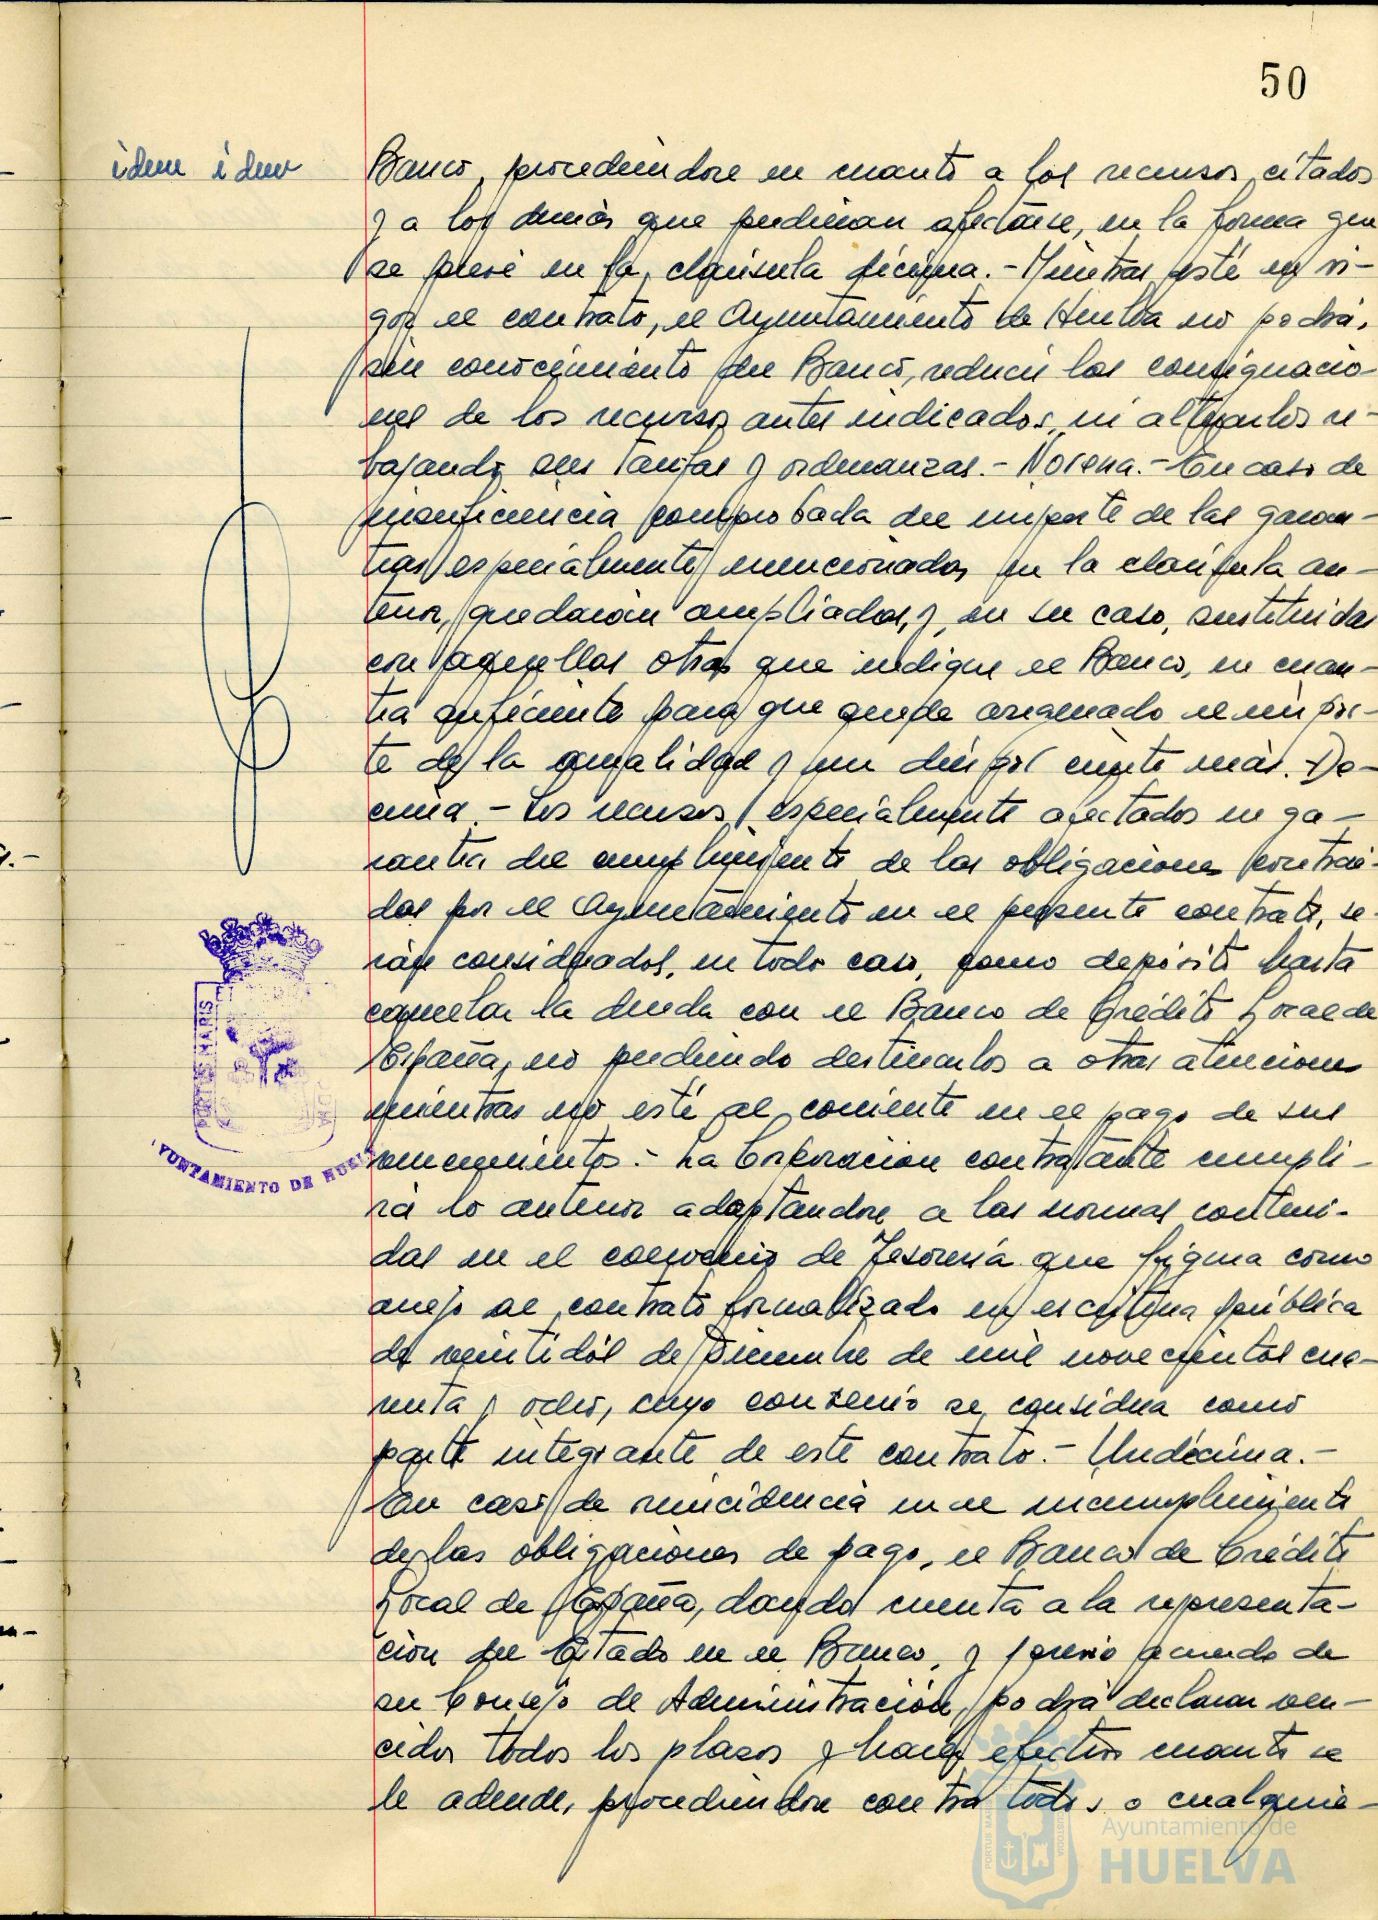 50
idem idem
Banco, procediéndose en cuanto a los recursos citados
y a los demás que pudieran afectarse, en la forma que
se prevé en la cláusula décima.- Mientras esté en vi-
gor el contrato, el Ayuntamiento de Huelva no podrá,
sin conocimiento del Banco, reducir las consignacio-
nes de los recursos antes indicados, ni alterarlos re-
bajando sus tarifas y ordenanzas.- Novena.- En caso de
insuficiencia comprobada del importe de las garan-
tías especialmente mencionadas en la cláusula an-
terior, quedarán ampliadas, y, en su caso, sustituidas
con aquellas otras que indique el Banco, en cuan-
tía suficiente para que quede asegurado el impor-
te de la anualidad y un diez por ciento más.- Dé-
cima.- Los recursos especialmente afectados en ga-
rantía del cumplimiento de las obligaciones contraí-
das por el Ayuntamiento en el presente contrato, se-
rán considerados, en todo caso, como depósito hasta
cancelar la deuda con el Banco de Crédito Local de
España, no pudiendo destinarlos a otras atenciones
mientras no esté al corriente en el pago de sus
vencimientos.- La Corporación contratante cumpli-
rá lo anterior adaptandose a las normas conteni-
das en el convenio de Tesorería que figura como
anejo al contrato formalizado en escritura pública
de veintidós de Diciembre de mil novecientos cua-
renta y ocho, cuyo convenio se considera como
parte integrante de este contrato.- Undécima.-
En caso de reincidencia en el incumplimiento
de las obligaciones de pago, el Banco de Crédito
Local de España, dando cuenta a la representa-
ción del Estado en el Banco, y previo acuerdo de
su Consejo de Administración, podrá declarar ven-
cidos todos los plazos y hacer efectivo cuanto se
le adeude, procediendose contra todos o cualquie-
PORTUS MARIS
AYUNTAMIENTO DE HUELVA
Ayuntamiento de
HUELVA